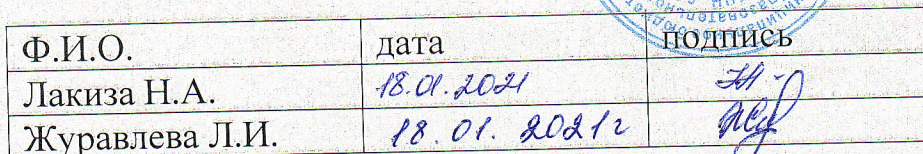 Ф.И.О. дата подпись
Лакиза Н.А. 18.01.2021
Журавлева Л.И. 18.01.2021г